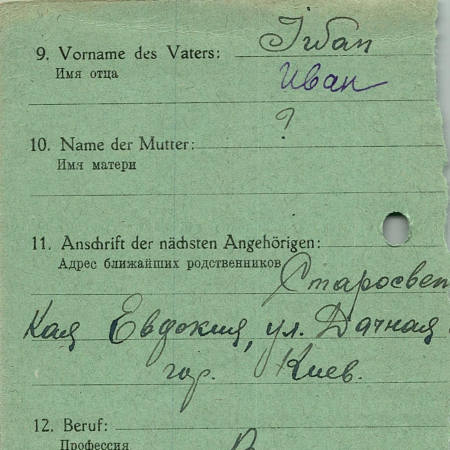 9. Vorname des Vaters: Iwan
Имя отца Иван
10. Name der Mutter: ?
Имя матери
11. Anschrift der nächsten Angehörigen:
Адрес ближайших родственников Старосвет
кая Евдокия, ул. Дачная
гор. Киев.
12. Beruf:
Профессия